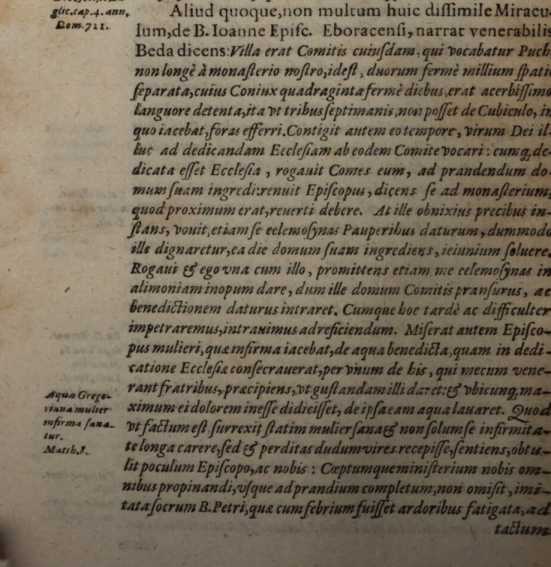 glic. cap. 4. ann.
Dom. 721.
Aliud quoque, non multum huic dissimile Miracu-
lum, de B. Ioanne Episc. Eboracensi, narrat venerabilis
Beda dicens: Villa erat Comitis cuiusdam, qui vocabatur Puch
non longè à monasterio nostro, idest, duorum fermè millium spatio
separata, cuius Coniux quadraginta fermè diebus, erat acerbissimo
languore detenta, ita vt tribus septimanis, non posset de Cubiculo, in
quo iacebat, foras efferri. Contigit autem eo tempore, virum Dei il-
luc ad dedicandam Ecclesiam ab eodem Comite vocari: cumq; de-
dicata esset Ecclesia, rogauit Comes eum, ad prandendum do-
mum suam ingredi: renuit Episcopus, dicens se ad monasterium,
quod proximum erat, reuerti debere. At ille obnixius precibus in-
stans, vouit, etiam se eelemosynas Pauperibus daturum, dummodo
ille dignaretur, ea die domum suam ingrediens, ieiunium soluere.
Rogaui & ego vna cum illo, promittens etiam me eelemosynas in
alimoniam inopum dare, dum ille domum Comitis pransurus, ac
benedictionem daturus intraret. Cumque hoc tardè ac difficulter
impetraremus, intrauimus ad reficiendum. Miserat autem Episco-
pus mulieri, quæ infirma iacebat, de aqua benedicta, quam in dedi-
catione Ecclesiæ consecrauerat, per vnum de his, qui mecum vene-
rant fratribus, præcipiens, vt gustandam illi daret: & vbicunq; ma-
ximum ei dolorem inesse didicisset, de ipsa eam aqua lauaret. Quod
vt factum est surrexit statim mulier sana & non solum se infirmita-
te longa carere, sed & perditas dudum vires recepisse, sentiens, obtu-
lit poculum Episcopo, ac nobis: Cœptumque ministerium nobis om-
nibus propinandi, vsque ad prandium completum, non omisit, imi-
tata socrum B. Petri, quæ cum febrium fuisset ardoribus fatigata, ad
tactum
Aqua Grego-
riana mulier
infirma sana-
tur.
Matth. 8.